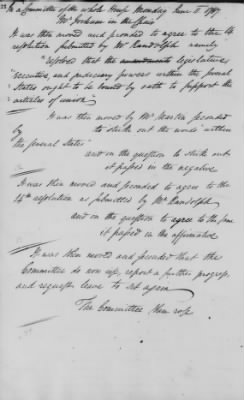 In a Committee of the whole House Monday June 11. 1787
Mr Gorham in the Chair
It was then moved and seconded to agree to the
resolution submitted by Mr Randolph namely
"resolved that the amendments legislative
executive, and judiciary powers within the several
States ought to be bound by oath to support the
articles of union
It was then moved by Mr Martin seconded
by to strike out the words "within
the several States"
and on the question to strike out
it passed in the negative
It was then moved and seconded to agree to the
14th resolution as submitted by Mr Randolph
and on the question to agree to the same
it passed in the affirmative
It was then moved and seconded that the
Committee do now rise, report a further progress,
and request leave to sit again
The Committee then rose